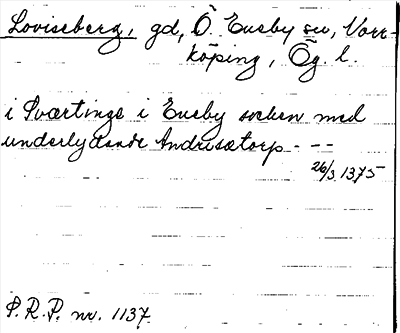 Loviseberg, gd, Ö. Eneby sn, Norr-
köping, Ög. l.
i Svertinge i Eneby socken med
underlydande Andrisætorp - --
26/3 1375
S.R.P. nr. 1137.